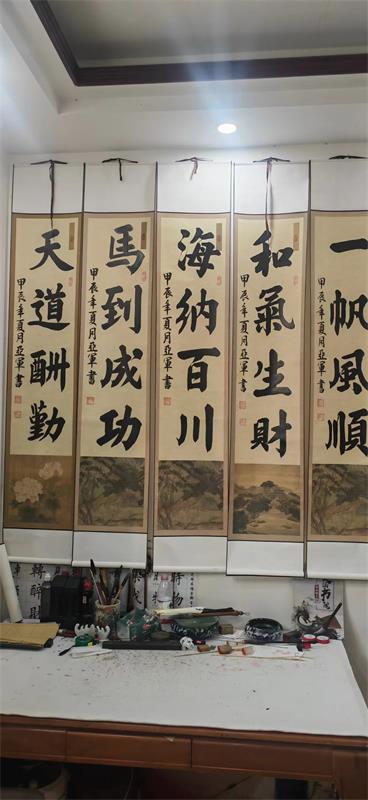 天道酬勤
甲辰年夏月亚军書
馬到成功
甲辰年夏月亚军書
海纳百川
甲辰年夏月亚军書
和氣生財
甲辰年夏月亚军書
一帆風順
甲辰年夏月亚军書